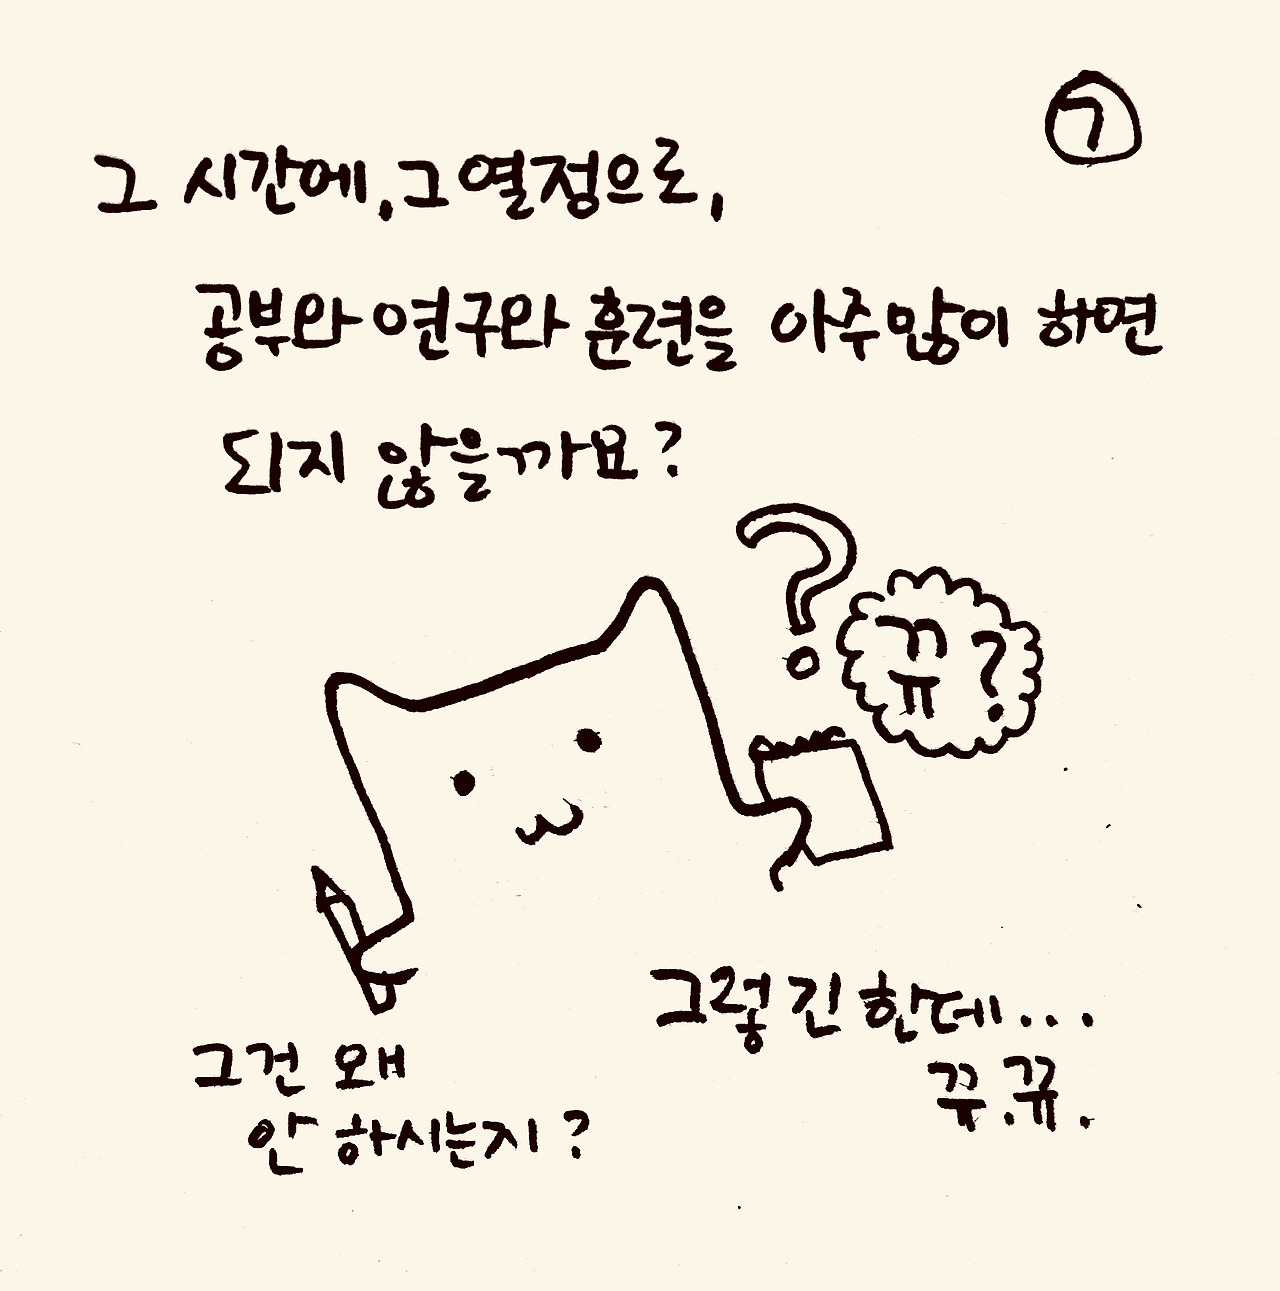 ⑦
그 시간에, 그 열정으로,
공부와 연구와 훈련을 아주 많이 하면
되지 않을까요?
?
뀨?
그렇긴 한데...
뀨.뀨.
그건 왜
안 하시는지?